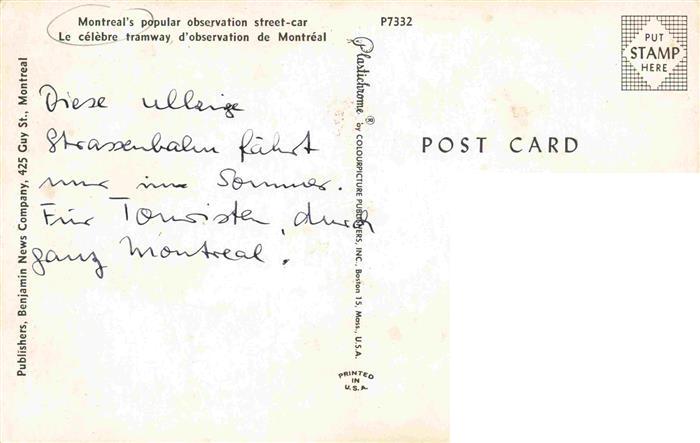 Montreal's popular observation street-car
Le célèbre tramway d'observation de Montréal
P7332
PUT
STAMP
HERE
POST CARD
Diese ulkige
Strassenbahn fährt
nur im Sommer.
Für Touristen, durch
ganz Montreal.
Publishers, Benjamin News Company, 425 Guy St., Montreal
Plastichrome ® by COLOURPICTURE PUBLISHERS, INC., Boston 15, Mass., U.S.A.
PRINTED
IN
U.S.A.